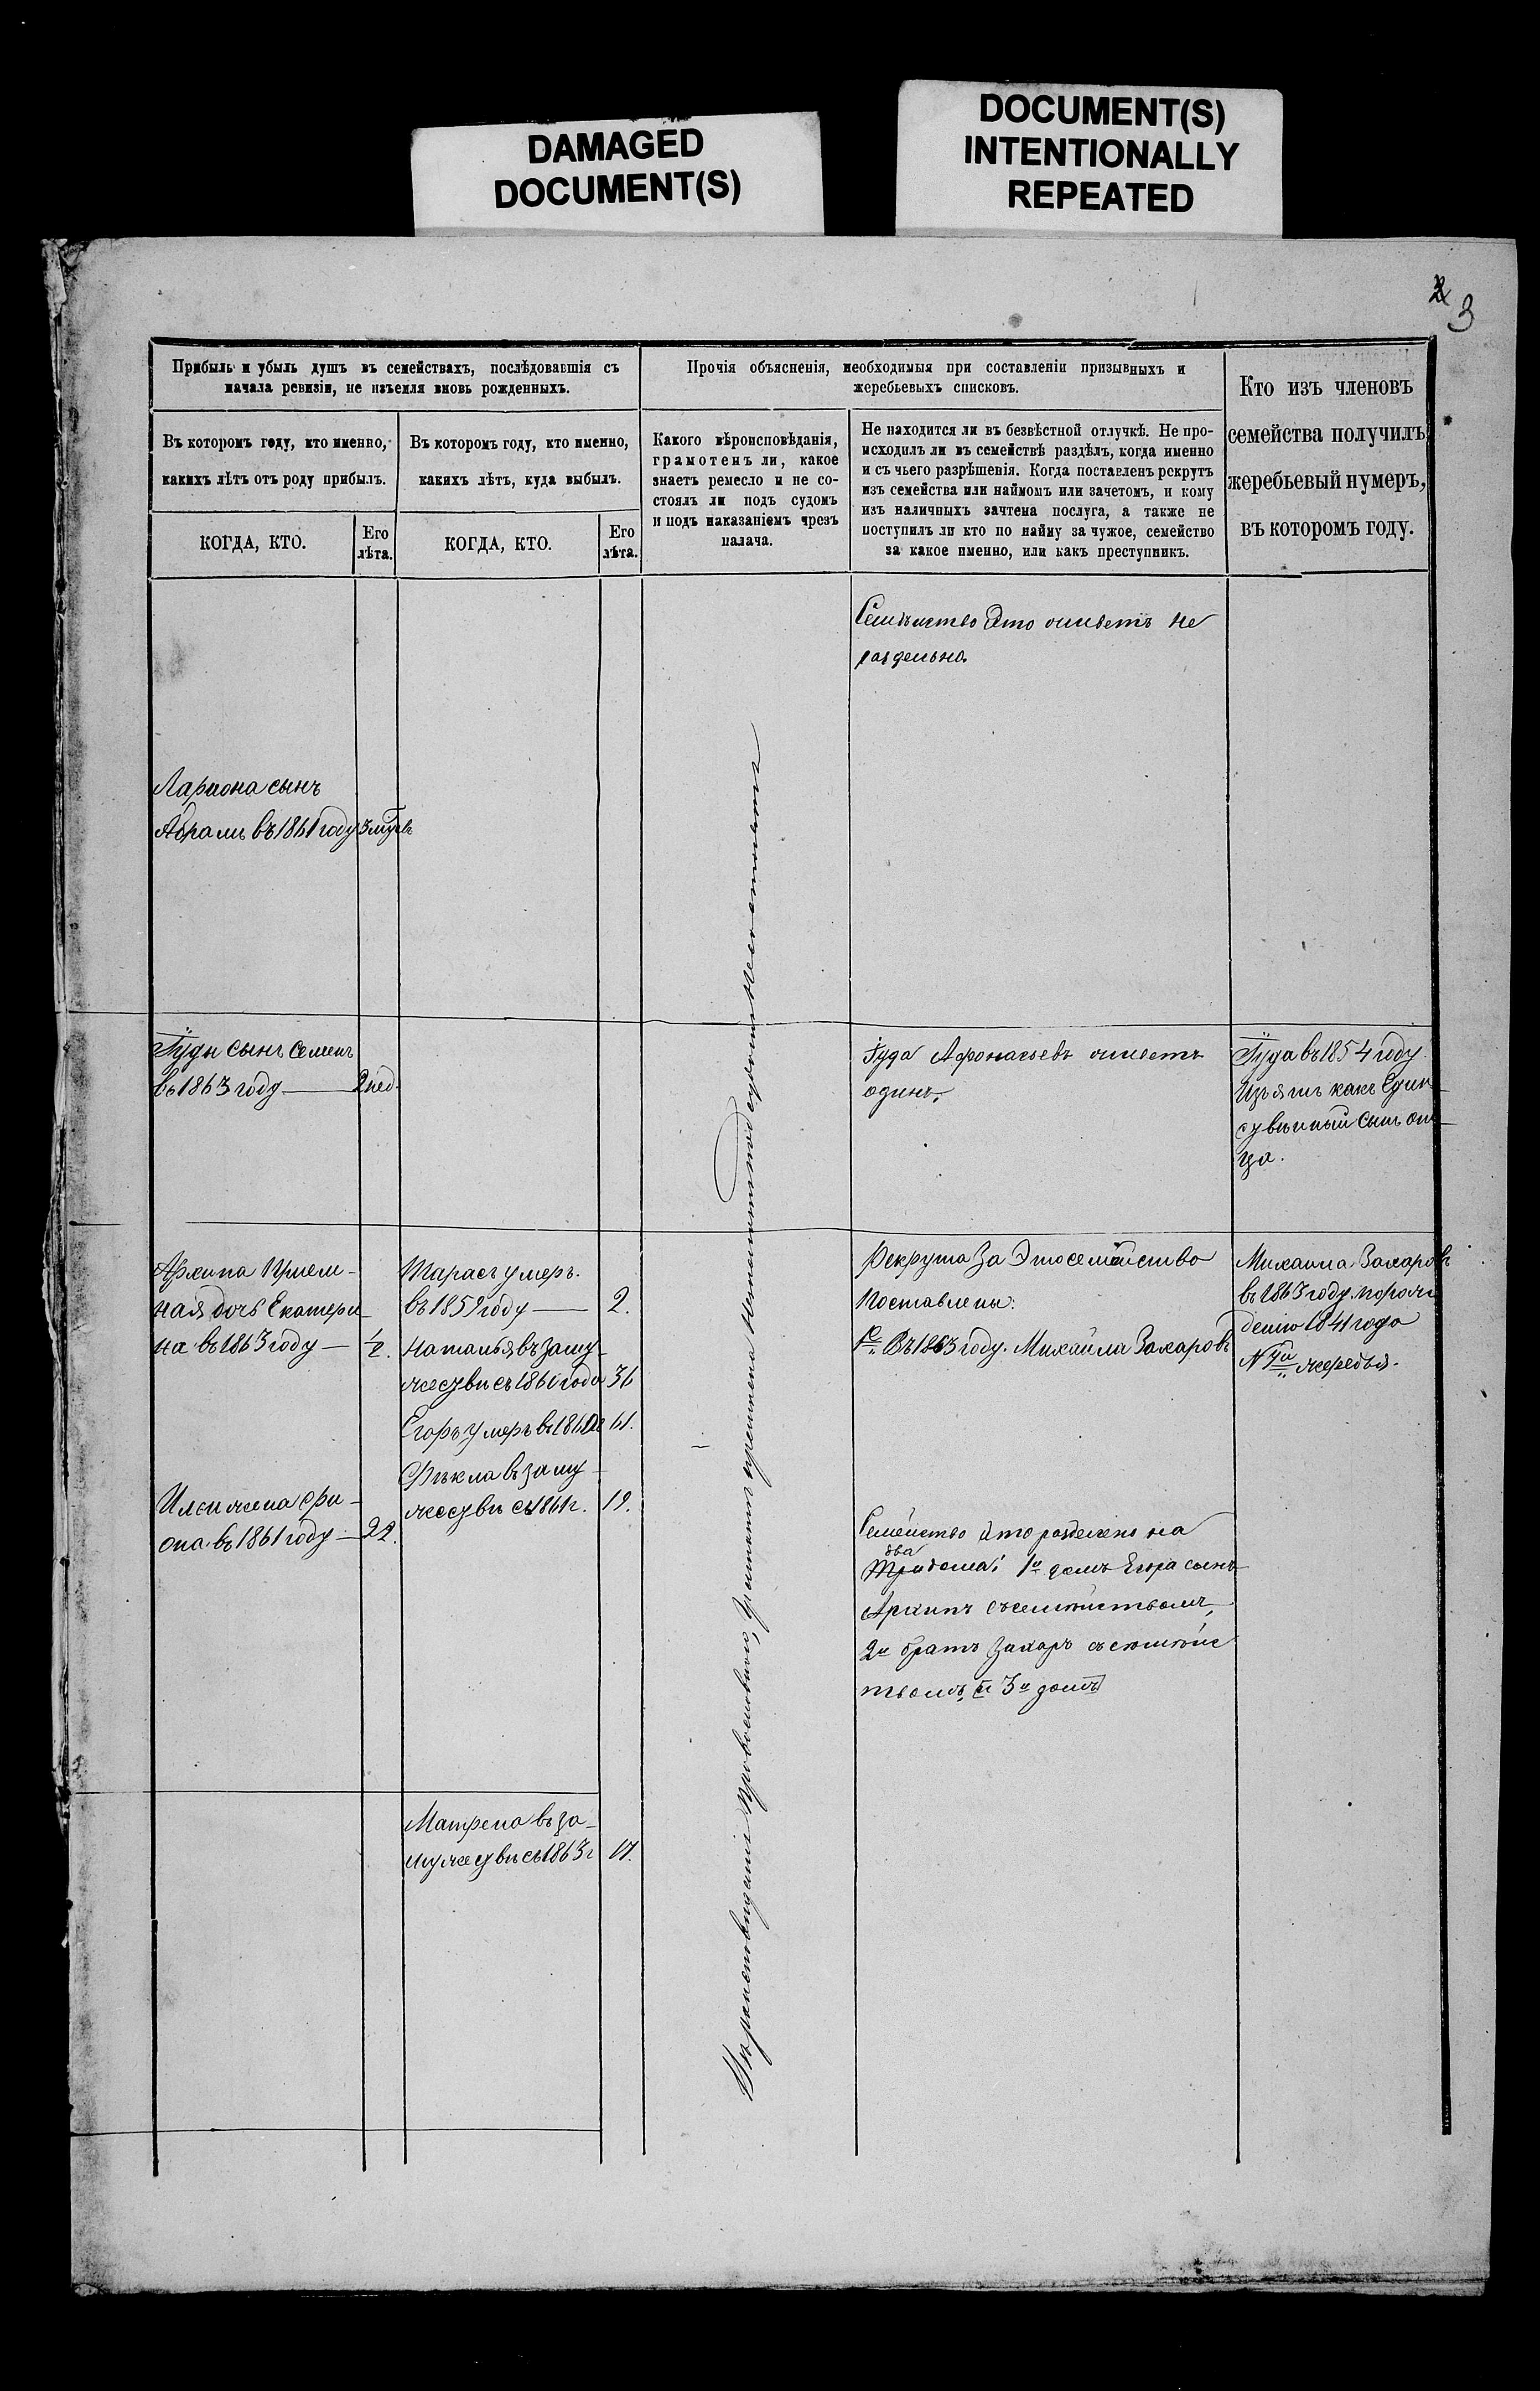 DAMAGED
DOCUMENT(S)
DOCUMENT(S)
INTENTIONALLY
REPEATED
3
Прибыль и убыль душъ въ семействахъ, послѣдовавшія съ
начала ревизіи, не изъемля вновь рожденныхъ.
Въ которомъ году, кто именно,
какихъ лѣтъ отъ роду прибылъ.
КОГДА, КТО.
Его
лѣта.
Въ которомъ году, кто именно,
какихъ лѣтъ, куда выбылъ.
КОГДА, КТО.
Его
лѣта.
Прочія объясненія, необходимыя при составленіи призывныхъ и
жеребьевыхъ списковъ.
Какого вѣроисповѣданія,
грамотенъ ли, какое
знаетъ ремесло и не со-
стоялъ ли подъ судомъ
и подъ наказаніемъ чрезъ
палача.
Не находится ли въ безвѣстной отлучкѣ. Не про-
исходилъ ли въ семействѣ раздѣлъ, когда именно
и съ чьего разрѣшенія. Когда поставленъ рекрутъ
изъ семейства или наймомъ или зачетомъ, и кому
изъ наличныхъ зачтена послуга, а также не
поступилъ ли кто по найму за чужое, семейство
за какое именно, или какъ преступникъ.
Кто изъ членовъ
семейства получилъ
жеребьевый нумеръ,
въ которомъ году.
Семѣйство Это живетъ не
раздельно.
Лариона сынъ
Абрамъ въ 1861 году
Іуды сынъ Семенъ
въ 1863 году — 2 нед.
Іуда Афонасьевъ живетъ
одинъ.
Іуда въ 1854 году
Изъятъ какъ Един-
ственный сынъ от-
ца.
Архипа Прием-
ная дочь Екатери-
на въ 1863 году — 1/2.
Ильи жена
въ 1861 году — 22.
Тарасъ умеръ
въ 1859 году — 2.
Наталья въ заму-
жествѣ съ 1860 года 36
Егоръ умеръ въ 61.
Фекла въ заму-
жествѣ съ 1861 г. 19.
Матрена въ за-
мужествѣ съ 1863 г 17.
Рекрута За Это семейство
Поставлены:
Въ 1863 году. Михайла Захаровъ
Семейство Это разделено на
два
Три дома: 1й домъ Егора сынъ
Архипъ съ семѣйствомъ,
2й братъ Захаръ съ семѣйс
твомъ, и 3й домъ
Михайла Захаровъ
въ 1863 году по рож
денію 1841 года
№ жеребья.
Вероисповеданія Православнаго,